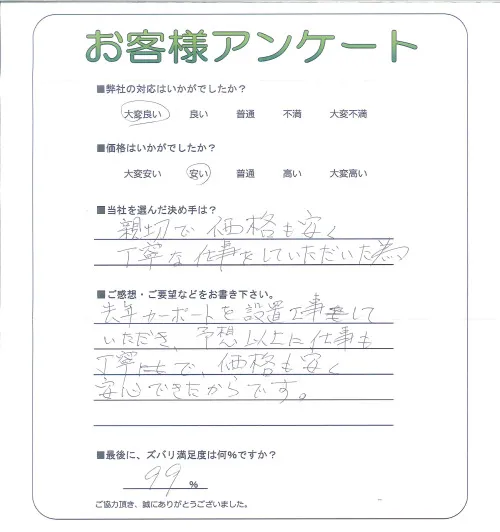 お客様アンケート
■弊社の対応はいかがでしたか？
大変良い 良い 普通 不満 大変不満
■価格はいかがでしたか？
大変安い 安い 普通 高い 大変高い
■当社を選んだ決め手は？
親切で価格も安く
丁寧な仕事をしていただいた為
■ご感想・ご要望などをお書き下さい。
去年カーポートを設置工事をして
いただき、予想以上に仕事も
丁寧で、価格も安く
安心できたからです。
■最後に、ズバリ満足度は何％ですか？
99％
ご協力頂き、誠にありがとうございました。